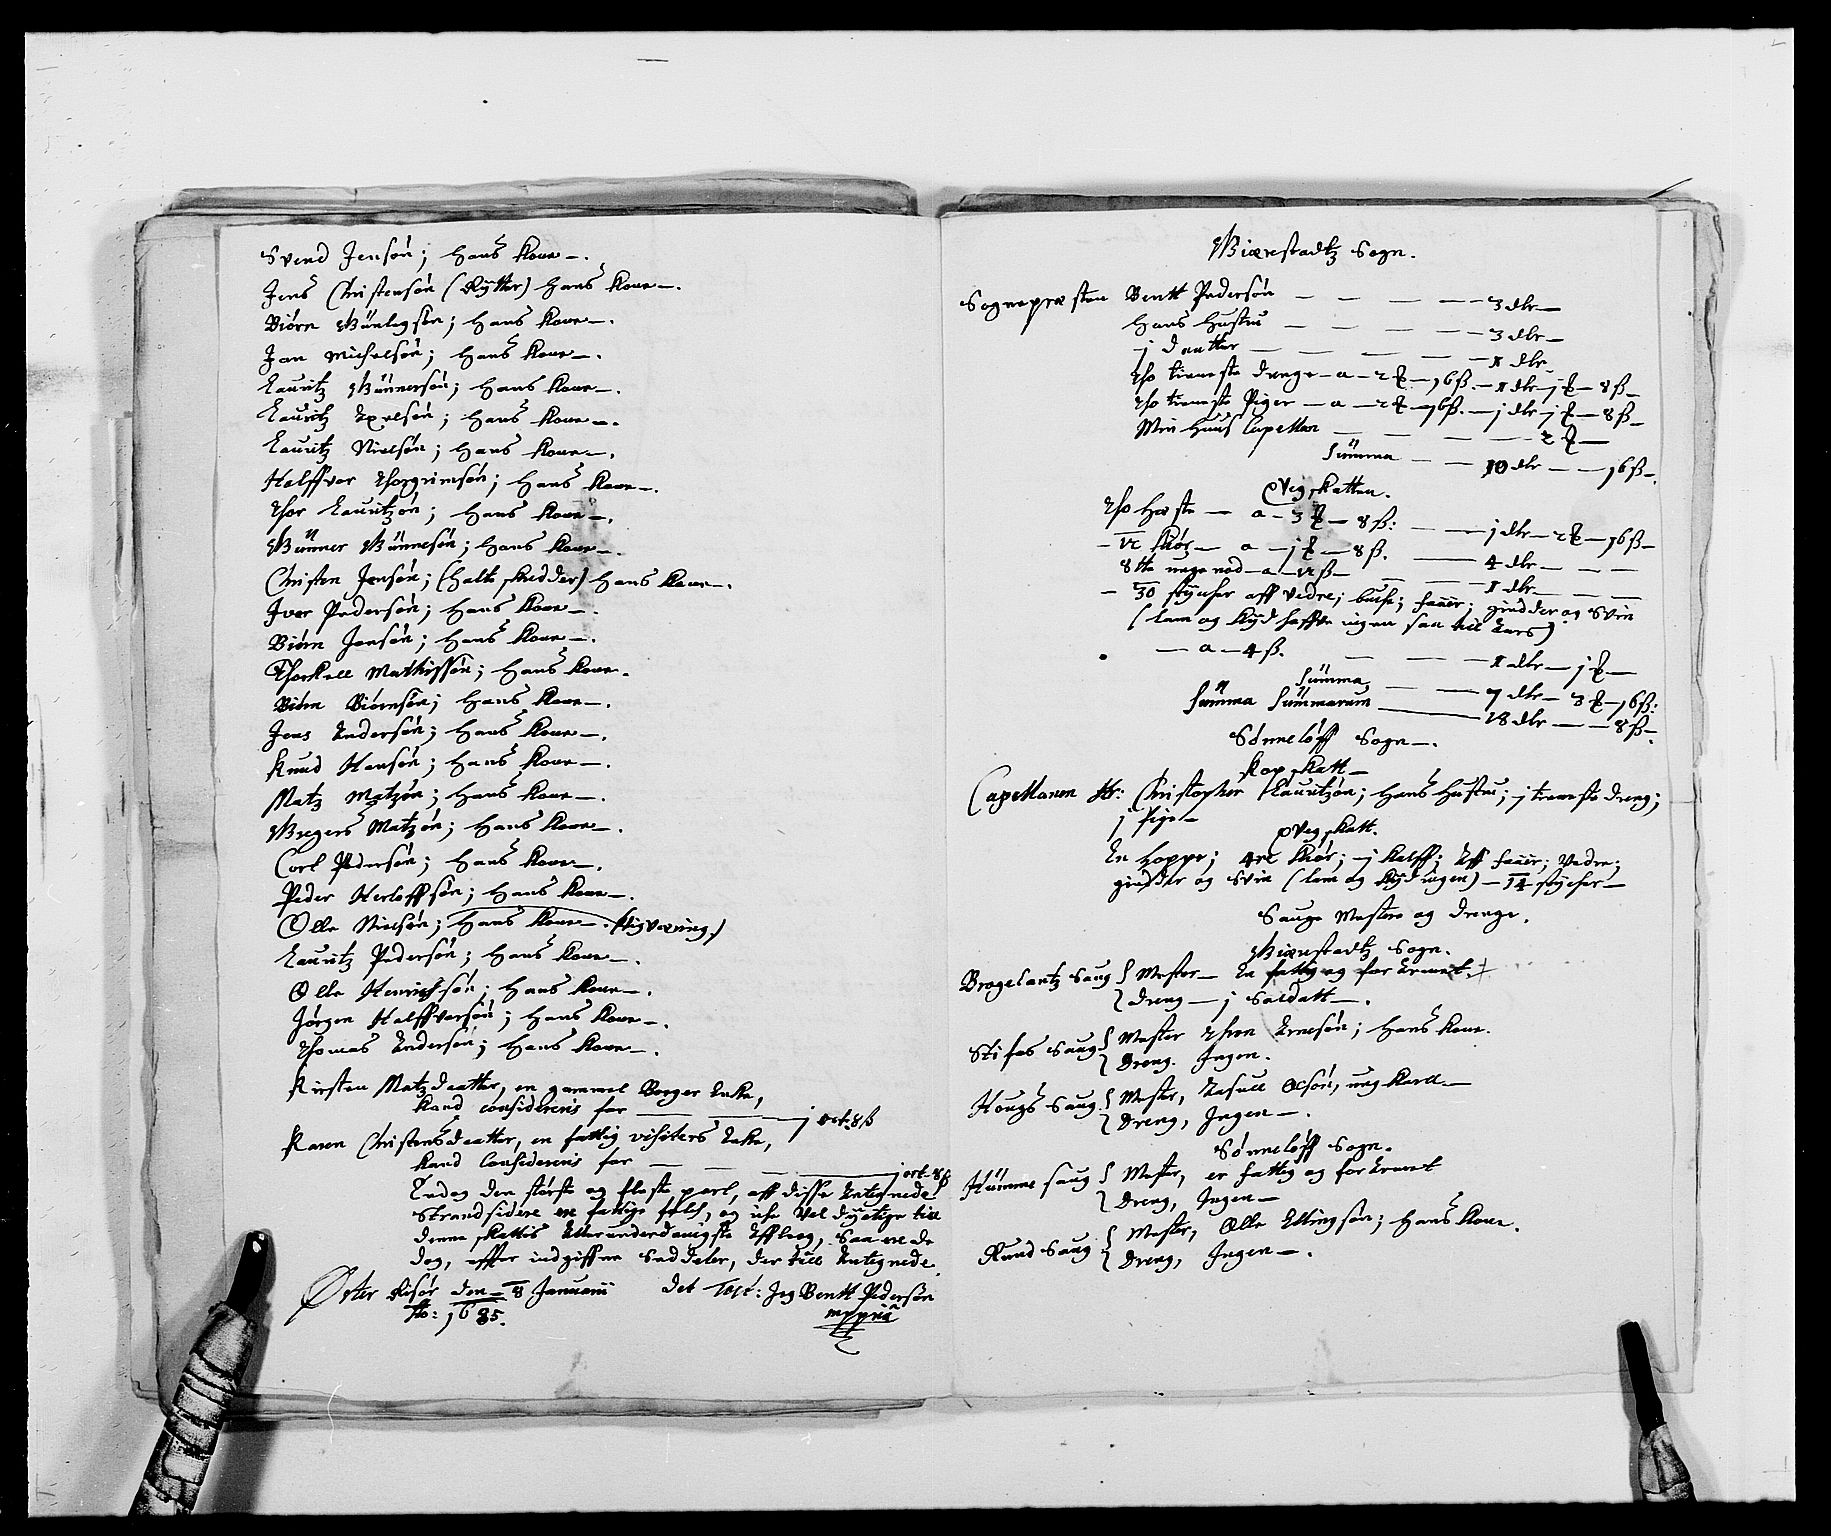 Svend Jensøn; hans Kone —.
Jens Christensøn (Rytter) hans Kone —.
Biørn Gunlegsøn; hans Kone —.
Jan Michelsøn; hans Kone —.
Lauritz Gunnersøn; hans Kone —.
Lauritz Exelsøn; hans Kone —.
Lauritz Nielsøn; hans Kone —.
Halffvor Thorgrimsøn; hans Kone —.
Thor Lauritzøn; hans Kone —.
Gunner Gunnesøn; hans Kone —.
Christen Jensøn; (halte skredder) hans Kone —.
Iver Pedersøn; hans Kone —.
Biørn Jensøn; hans Kone —.
Thorkell Mathissøn; hans Kone.
Biørn Biørnsøn; hans Kone —.
Jens Andersøn; hans Kone —.
Knud Hansøn; hans Kone —.
Matz Matzøn; hans Kone —.
Gregers Matzøn; hans Kone —.
Corl Pedersøn; hans Kone —.
Peder Herloffsøn; hans Kone —.
Olle Nielsøn; hans Kone —. (Kigværing)
Lauritz Pedersøn; hans Kone —.
Olle Henrichsøn; hans Kone —.
Jørgen Halffvorsøn; hans Kone —.
Thomas Andersøn; hans Kone —.
Kirsten Matzdaatter, en gammel Borger Enke,
kand consideris for — — j ort 8 ß
Karen Christensdaatter, en fattig visiters Enke,
kand consideris for — — — j ort 8 ß
Endog den største og fleste part, aff disse Antegnede
Strandsidere ere fattige folch, og iche Vel dyetige till
denne skattis Allerunderdanigste Affleeg, Saa ere de
dog, effter indgiffne Seddeler, her till Antegnede.
Øster Risøer den 8 Januarij det Test: Jeg Bentt Pedersøn
Ao: 1685. mppria
Gierrestadtz Sogn.
Sognepræsten Bentt Pedersøn — — — — 3 dlr —
Hans Hustru — — — — 3 dlr —
j daatter — — — — 1 dlr
Tho tieneste drenge — a — 2 ℔ — 16 ß. — 1 dlr — j ℔ — 8 ß —
Tho tieneste Piger — a — 2 ℔ — 16 ß. — j dlr — j ℔ — 8 ß —
Min Huus Capellan — — — — 2 ℔ —
Summa — — 10 dlr — — 16 ß —.
Qveg skatten.
Tho Heste — a — 3 ℔ — 8 ß: — — j dlr — 2 ℔ — 16 ß —
— 12 Kiør — a — j ℔ — 8 ß. — 4 dlr — — —
8tte unge nød — a — 12 ß — — — 1 dlr — — —
— 30 stycher aff vedre; bucke; faaer; gieder og Svin
(lam og Kyd haffve ingen saa till Aars)
— a — 4 ß. — — 1 dlr — j ℔ —
Summa — — 7 dlr — 3 ℔ — 16 ß:
Summa Summarum — 18 dlr — — 8 ß —.
Sønneløff Sogn —.
Kop skatt —
Capellanen Hr: Christopher Lauritzøn; hans Hustru; j tieneste dreng;
j pige —
Qveg skatt.
En hoppe; 4re Kiør; — j Kalff; Aff faaer; Vedre;
gieder og Svin (lam og Kyd ingen) — 14 stycher —
Sauge Mestere og drenge.
Gierrestadtz Sogn.
Brogelantz Saug { Mester — En fattig og forarmet.
{ dreng — j Soldatt —.
Stifos Saug { Mester Thron Arnesøn; hans Kone.
{ dreng. Ingen.
Hougs Saug { Mester, Olsøn, ung karll —
{ dreng, Ingen —.
Sønneløff Sogn.
Humme Saug { Mester, er fattig og forarmet
{ dreng, Ingen —
Rund Saug { Mester, Olle Ellingsøn; hans Kone.
{ dreng, Ingen —.